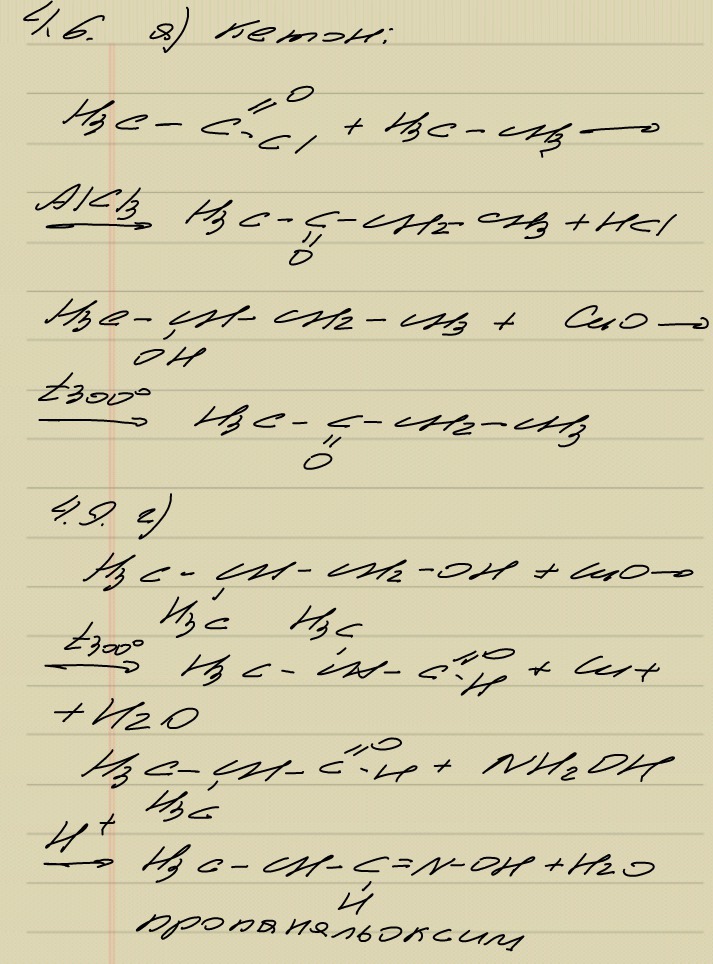 4.6. а) кетон:
H3C - C =O - Cl + H3C - CH3 →
AlCl3 → H3C - C - CH2 - CH3 + HCl
=O
H3C - CH - CH2 - CH3 + CuO →
OH
t300° → H3C - C - CH2 - CH3
=O
4.9. г)
H3C - CH - CH2 - OH + CuO →
H3C H3C
t300° → H3C - CH - C =O - H + Cu +
+ H2O
H3C - CH - C =O - H + NH2OH
H3C
H+ → H3C - CH - C = N - OH + H2O
H
пропанальоксим